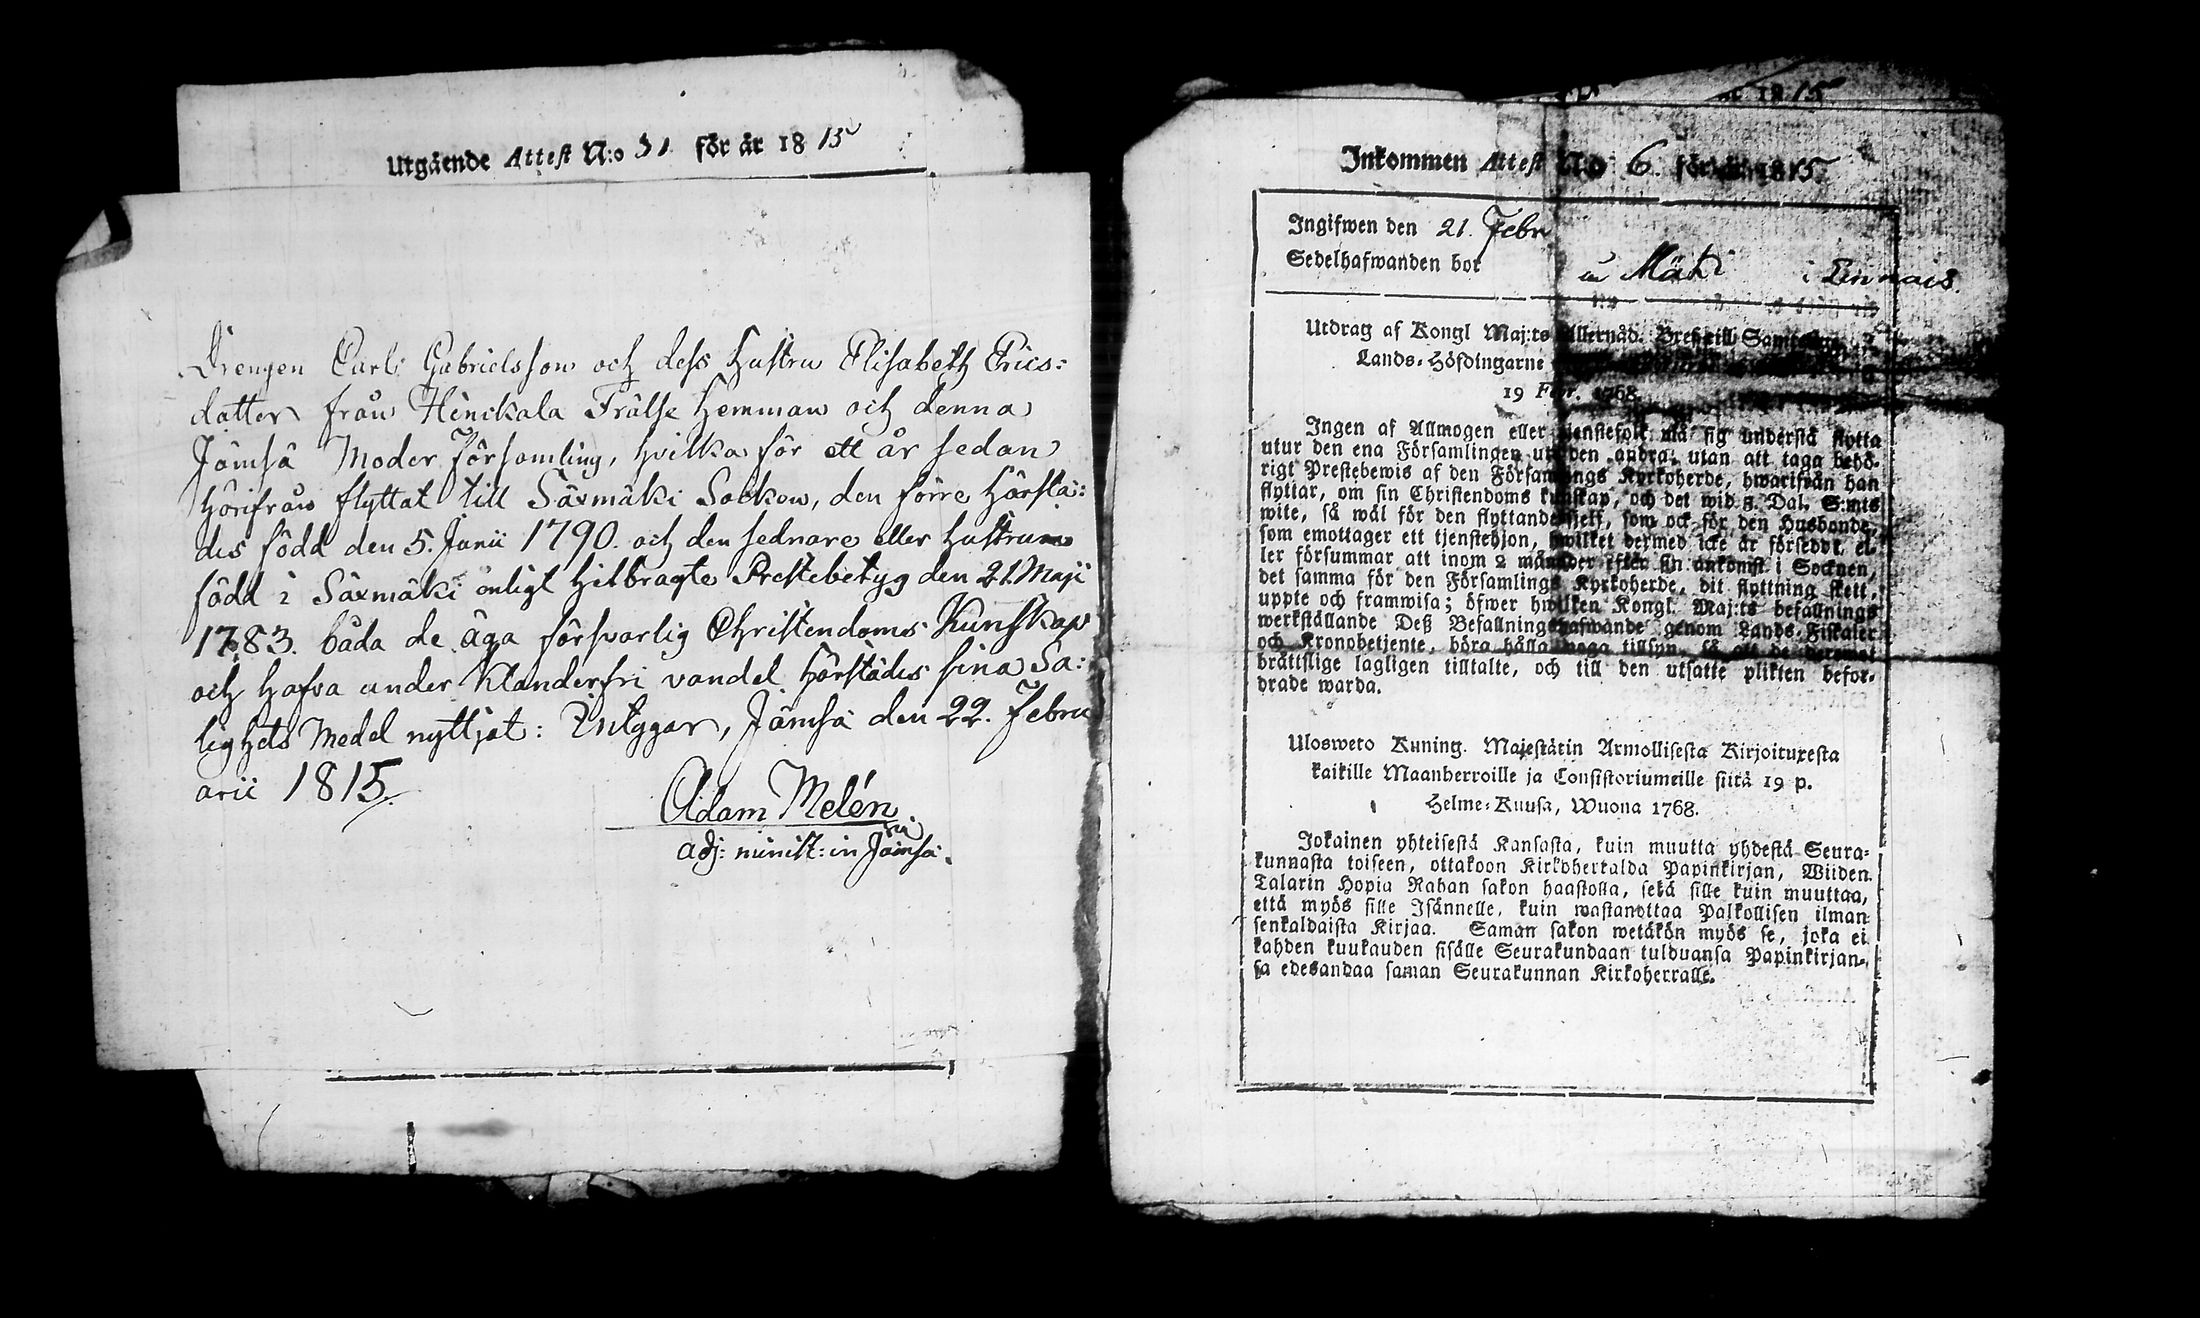 Utgående Attest N:o 31 för år 1815
Drengen Carl Gabrielsson och dess hustru Elisabeth Erics:
dotter från Hinckala Frälse hemman och denna
Jämsä Moder Församling, hvilka för ett år sedan
härifrån flyttat till Säxmäki Socken, den förre härstä:
des född den 5. Junii 1790. och den sednare eller hustrun
född i Säxmäki enligt hitbragte Prestebetyg den 21. Maji
1783. båda de äga försvarlig Christendoms Kunskap
och hafva under klanderfri vandel härstädes sina Sa:
lighets Medel nyttjat: Intygar, Jämsä den 22. Febru
arii 1815.
Adam Melén
adj: minist: in Jämsä.
1815
Inkommen Attest N:o 6. för år 1815.
Ingifwen den 21. Febr
Sedelhafwanden bor å Mäki i Linnais.
Utdrag af Kongl Maj:ts Allernåd. Bref till Samtelige
Lands-Höfdingarne
19 Febr. 1768.
Ingen af Allmogen eller tjenstefolk må sig understå flytta
utur den ena Församlingen uti den andra, utan att taga behö-
rigt Prestebewis af den Församlings Kyrkoherde, hwarifrån han
flyttar, om sin Christendoms kunskap, och det wid 5. Dal. S:mts
wite, så wäl för den flyttande sjelf, som ock för den Husbonde,
som emottager ett tjenstehjon, hwilket dermed icke är försedt, el-
ler försummar att inom 2 månader efter sin ankomst i Socknen,
det samma för den Församlings Kyrkoherde, dit flyttning skett,
uppte och framwisa; öfwer hwilken Kongl. Maj:ts befallnings
werkställande Deß Befallningshafwande genom Lands-Fiskaler
och Kronobetjente, böra hålla noga tillsyn, så att de deremot
bråttslige lagligen tilltalte, och till den utsatte plikten befor-
drade warda.
Ulosweto Kuning. Majestätin Armollisesta Kirjoituxesta
kaikille Maanherroille ja Consistoriumeille siitä 19 p.
Helme-Kuusa, Wuona 1768.
Jokainen yhteisestä Kansasta, kuin muutta yhdestä Seura-
kunnasta toiseen, ottakoon Kirkoherralda Papinkirjan, Wiiden
Talarin Hopia Rahan sakon haastolla, sekä sille kuin muuttaa,
että myös sille Isännelle, kuin wastanottaa Palkollisen ilman
senkaldaista Kirjaa. Saman sakon wetäkön myös se, joka ei
kahden kuukauden sisälle Seurakundaan tulduansa Papinkirjan-
sa edesandaa saman Seurakunnan Kirkoherralle.